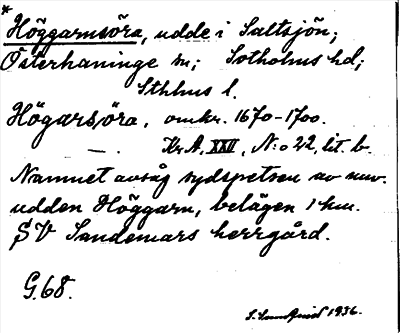 *
Höggarnsöra, udde i Saltsjön;
Österhaninge sn; Sotholms hd;
Sthlms l.
Högarsöra, omkr. 1670-1700.
—. Kr. A. XXII, N:o 22, lit. b.
Namnet avsåg sydspetsen av nuv.
udden Höggarn, belägen 1 km.
SV Sandemars herrgård.
G. 68.
1936.